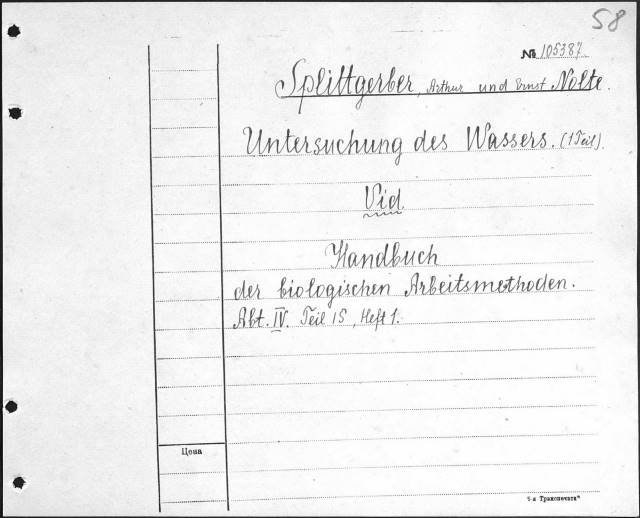 58
№ 105387
Splittgerber, Arthur und Ernst Nolte.
Untersuchung des Wassers. (1 Teil).
Vid.
Handbuch
der biologischen Arbeitsmethoden.
Abt. IV. Teil 15, Heft 1.
Цена
"1-я Транспечать"